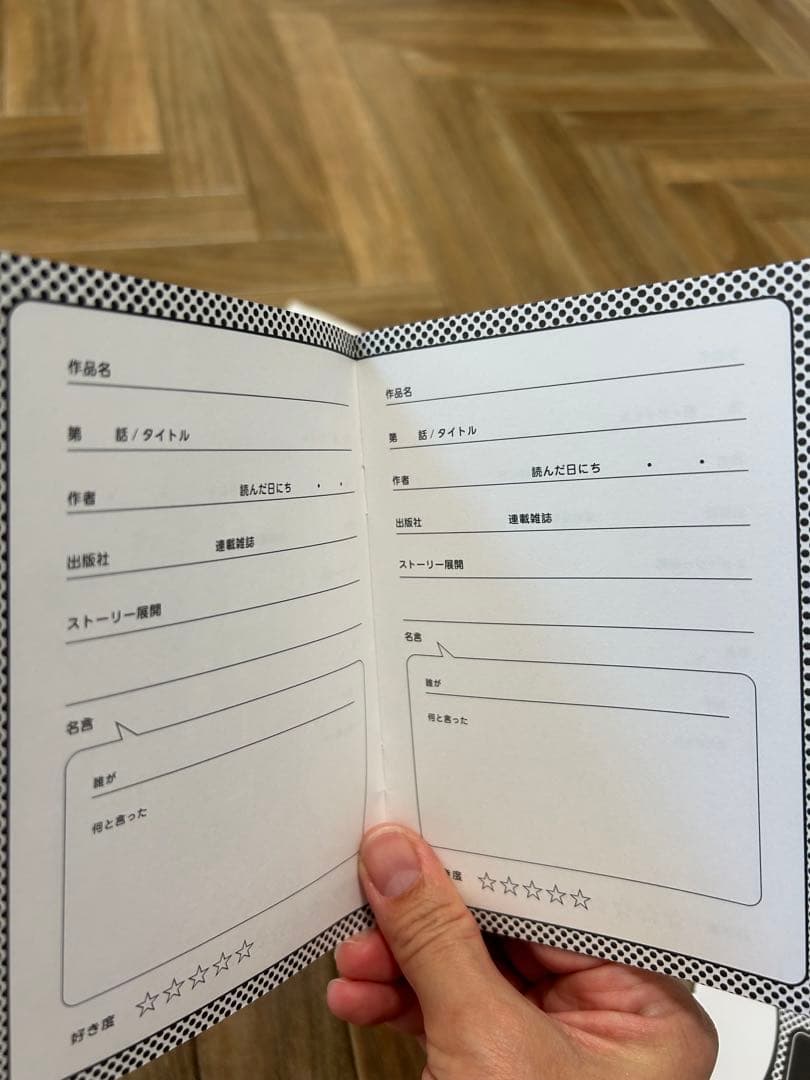 作品名
第 話 / タイトル
作者 読んだ日にち ・ ・
出版社 連載雑誌
ストーリー展開
名言
誰が
何と言った
好き度 ☆☆☆☆☆
作品名
第 話 / タイトル
作者 読んだ日にち ・ ・
出版社 連載雑誌
ストーリー展開
名言
誰が
何と言った
き度 ☆☆☆☆☆